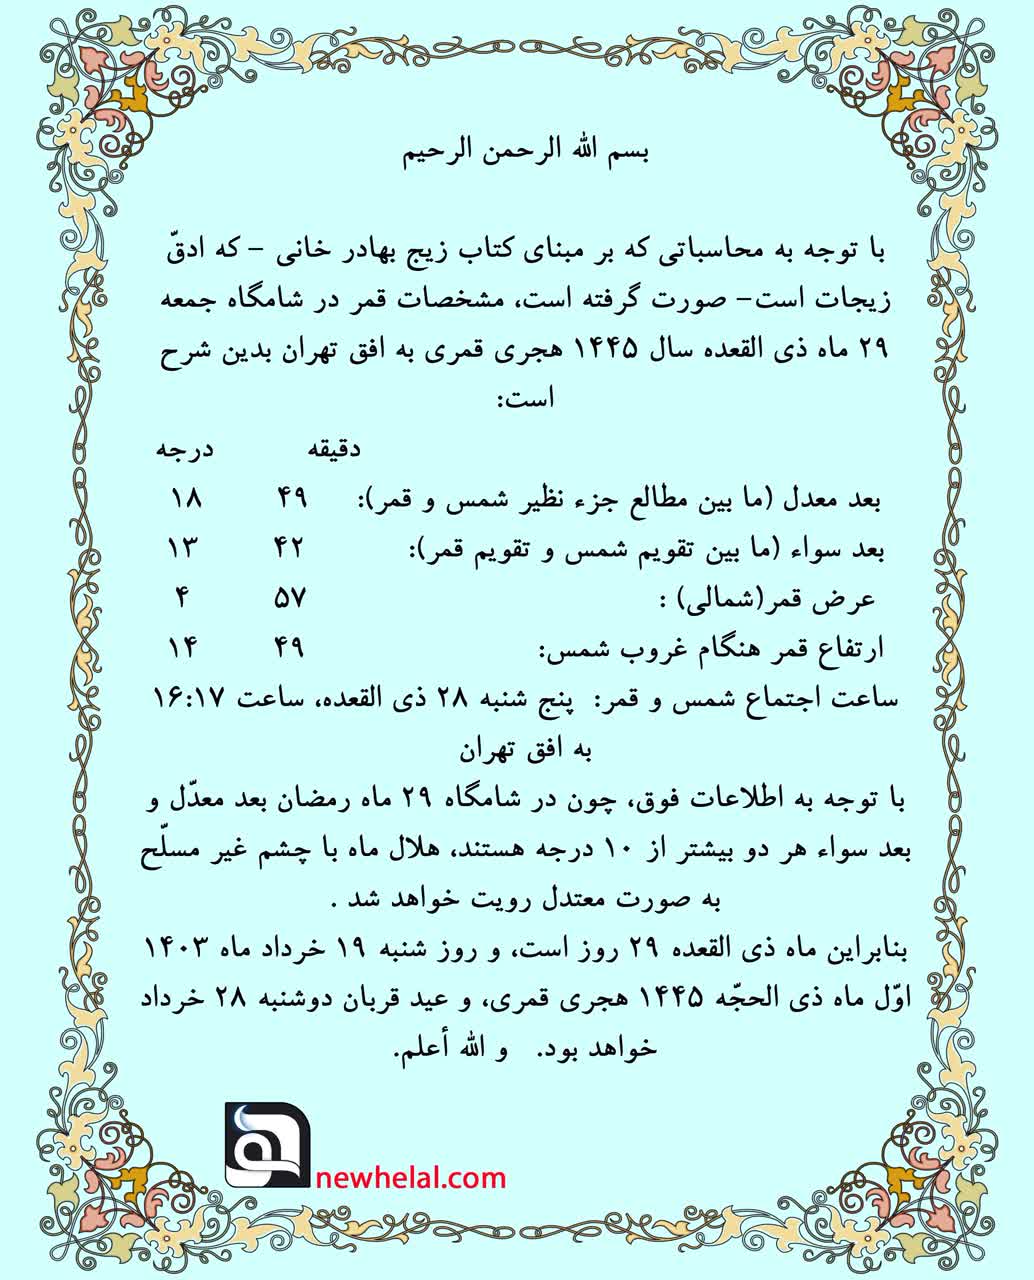 بسم الله الرحمن الرحیم
با توجه به محاسباتی که بر مبنای کتاب زیج بهادر خانی – که ادقّ
زیجات است– صورت گرفته است، مشخصات قمر در شامگاه جمعه
۲۹ ماه ذی القعده سال ۱۴۴۵ هجری قمری به افق تهران بدین شرح
است:
دقیقه درجه
بعد معدل (ما بین مطالع جزء نظیر شمس و قمر): ۴۹ ۱۸
بعد سواء (ما بین تقویم شمس و تقویم قمر): ۴۲ ۱۳
عرض قمر(شمالی) : ۵۷ ۴
ارتفاع قمر هنگام غروب شمس: ۴۹ ۱۴
ساعت اجتماع شمس و قمر: پنج شنبه ۲۸ ذی القعده، ساعت ۱۶:۱۷
به افق تهران
با توجه به اطلاعات فوق، چون در شامگاه ۲۹ ماه رمضان بعد معدّل و
بعد سواء هر دو بیشتر از ۱۰ درجه هستند، هلال ماه با چشم غیر مسلّح
به صورت معتدل رویت خواهد شد .
بنابراین ماه ذی القعده ۲۹ روز است، و روز شنبه ۱۹ خرداد ماه ۱۴۰۳
اوّل ماه ذی الحجّه ۱۴۴۵ هجری قمری، و عید قربان دوشنبه ۲۸ خرداد
خواهد بود. و الله أعلم.
newhelal.com